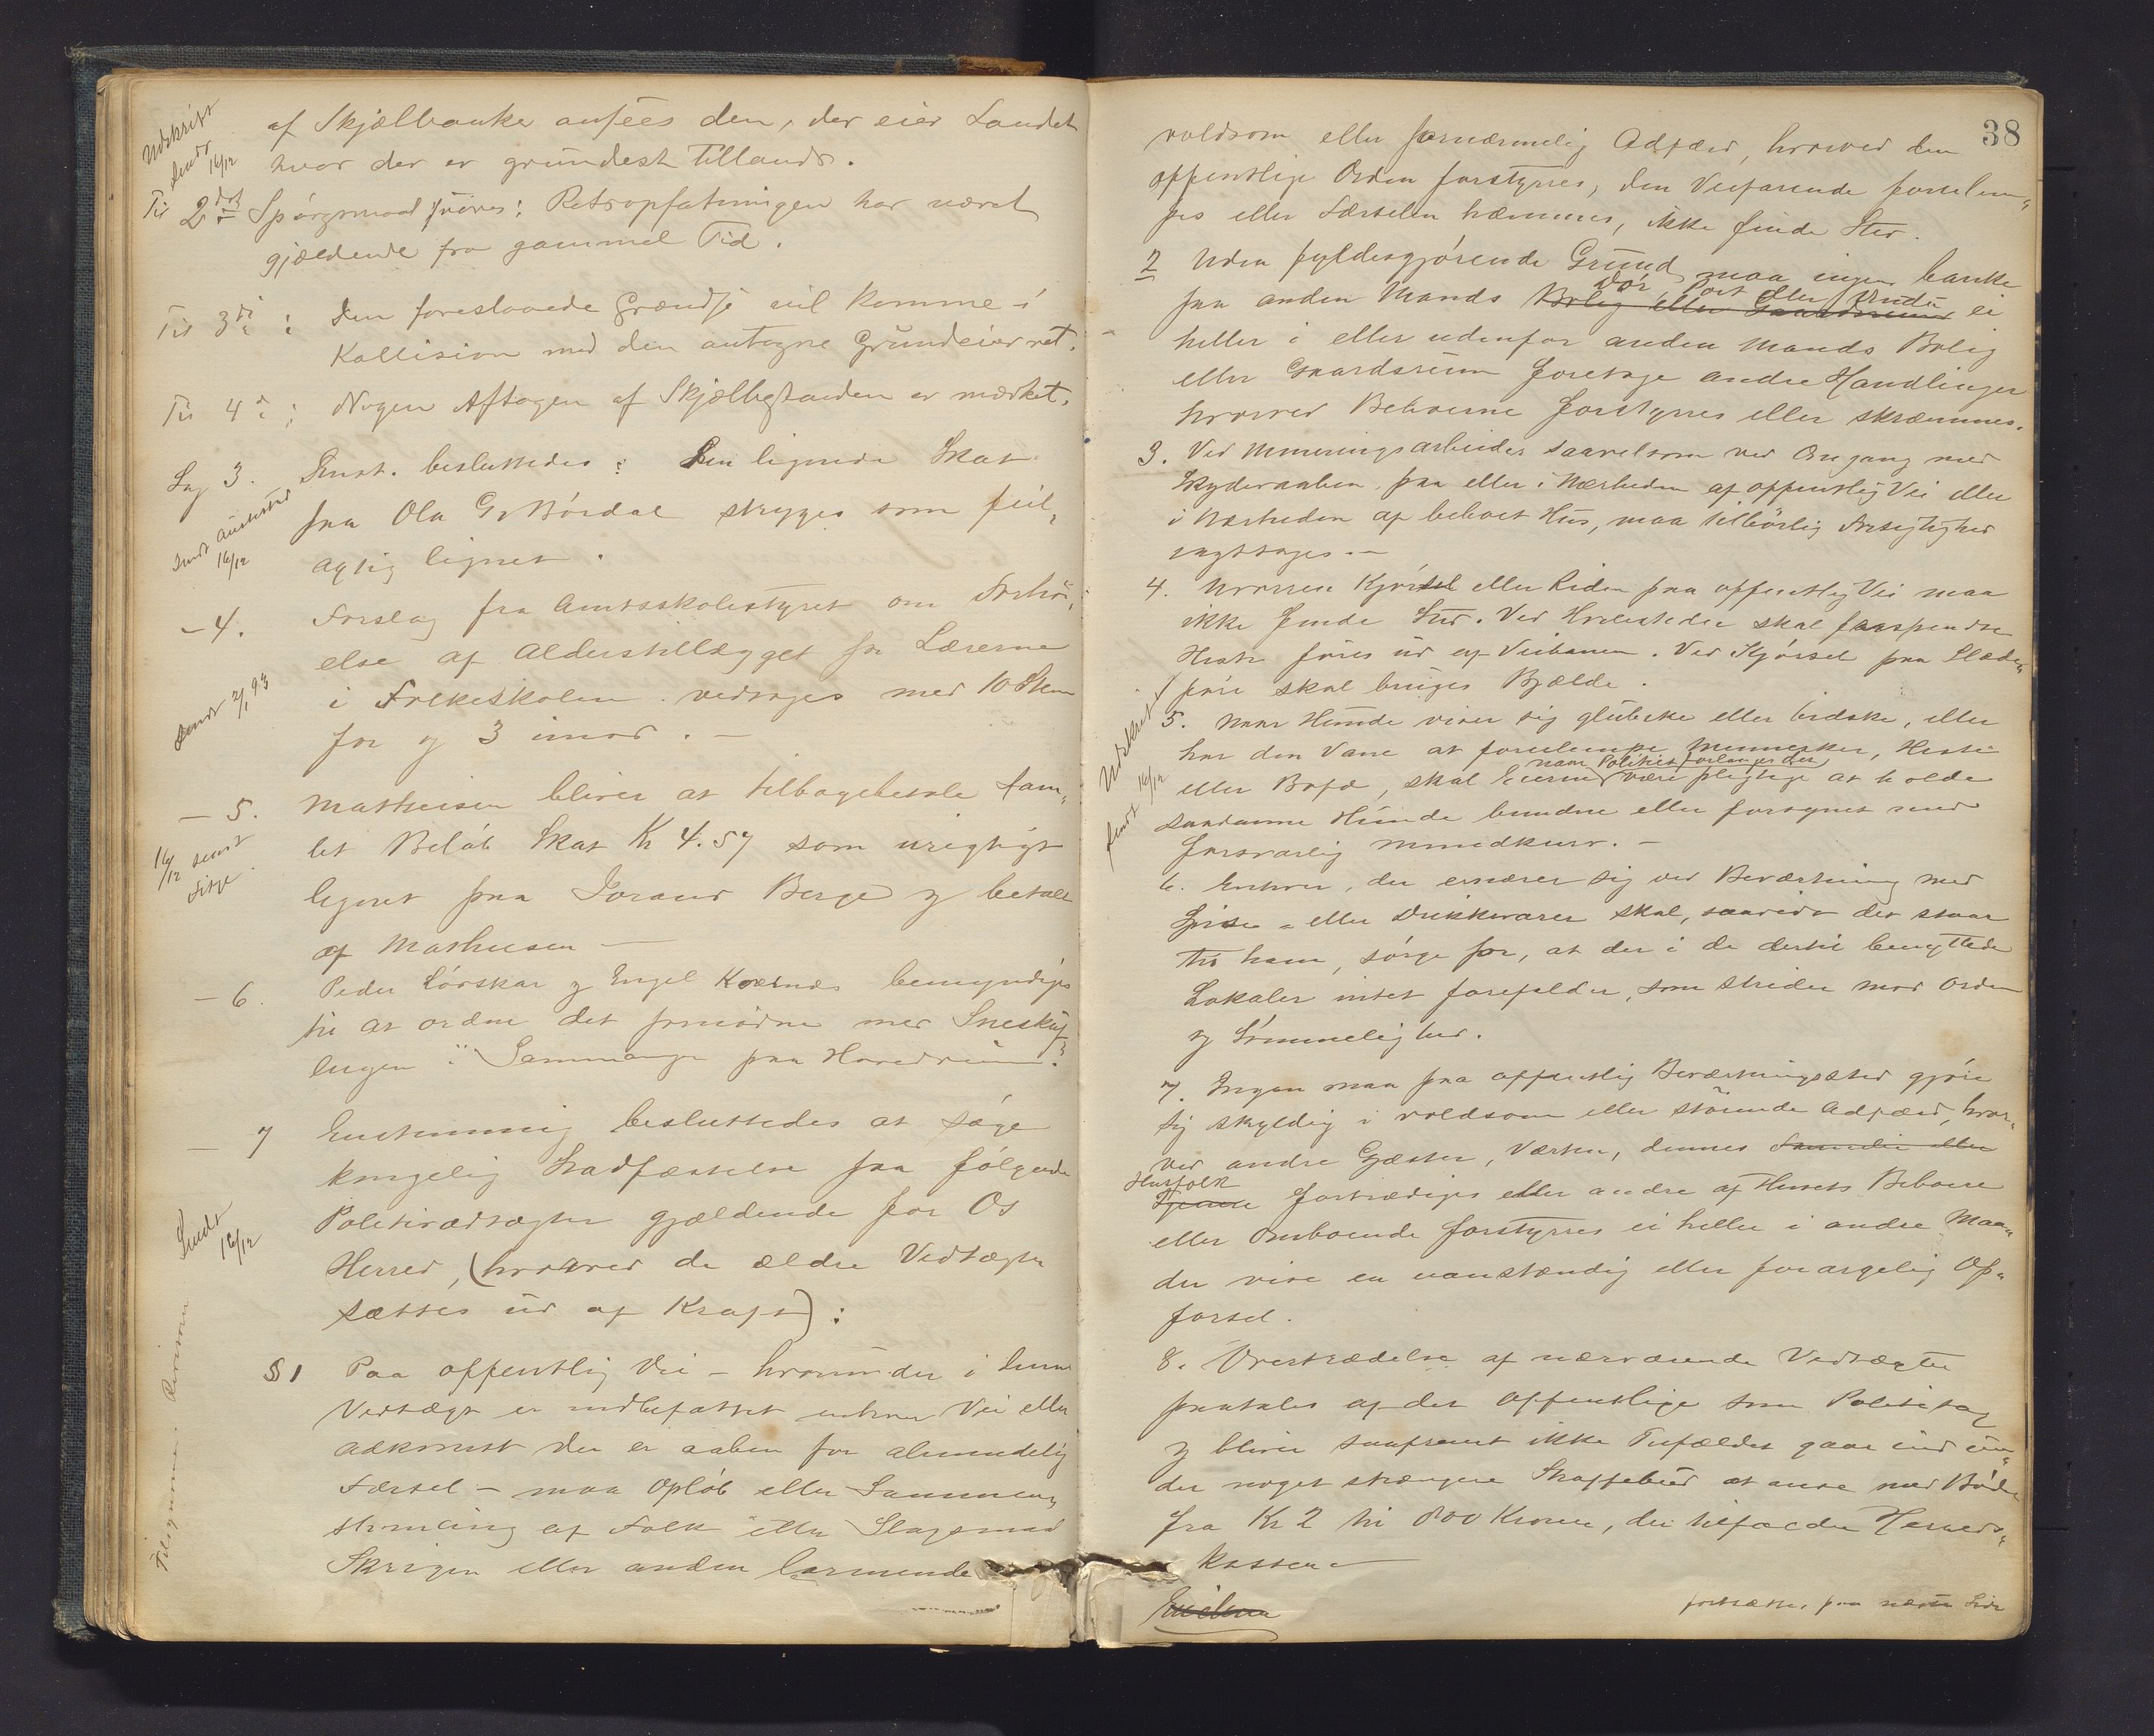 Udskrift
sendt
16/12
af Skjælbanke ansees den, der eier Landet
hvor der er grundest Tillands.
Til 2det Spörgsmaal svares: Retsopfatningen har været
gjældende fra gammel Tid.
Til 3die : Den foreslaaede Grændse vil komme i
Kollision med den antagne Grundeierret.
Til 4de : Nogen Aftagen af Skjælbestanden er mærket.
Sag 3. Enst. besluttedes: Den lignede Skat
paa Ola G. Bördal stryges som feil-
agtig lignet.
Sendt
16/12
- 4. Forslag fra Amtsskolestyret om Forhöi-
else af Alderstillægget for Lærerne
i Folkeskolen vedtages med 10 Stem
for og 3 imod. -
Sendt 2/1 93
- 5. Mathiesen bliver at tilbagebetale sam-
let Belöb Skat Kr 4.57 som urigtigt
lignet paa Berge og betalt
af Mathiesen -
16/12 sendt
- 6. Peder Lörskar og Engel Kværnæs bemyndiges
til at ordne det fornödne med Sneskuf-
lingen i paa
- 7 Enstemmig besluttedes at söge
kongelig Stadfæstelse paa fölgende
Politivedtægter gjældende for Os
Herred, (hvorved de ældre Vedtægter
sættes ud af Kraft):
Sendt
16/12
§ 1 Paa offentlig Vei - hvorunder i denne
Vedtægt er indbefattet enhver Vei eller
Adkomst der er aaben for almindelig
Færsel - maa Oplöb eller Sammen-
stimling af Folk eller Slagsmaal
Skrigen eller anden larmende
38
voldsom eller fornærmelig Adfærd, hvorved den
offentlige Orden forstyrres, den Veifarende forulem-
pes eller Færselen hæmmes, ikke finde Sted.
2 Uden fyldestgjörende Grund maa ingen banke
Dör, Port eller Vindu
paa anden Mands Bolig eller Gaardsrum ei
heller i eller udenfor anden Mands Bolig
eller Gaardsrum foretage andre Handlinger
hvorved Beboerne forstyrres eller skræmmes.
3. Ved Mineringsarbeider saavelsom ved Omgang med
Skydevaaben paa eller i Nærheden af offentlig Vei eller
i Nærheden af beboet Hus, maa tilbörlig Forsigtighed
iagttages. -
4. Uvorren Kjörsel eller Riden paa offentlig Vei maa
ikke finde Sted. Ved Hvilesteder skal forspændte
Heste föres ud af Veibanen. Ved Kjörsel paa Slæde-
före skal bruges Bjælde.
Udskrift
sendt 16/12
5. Naar Hunde viser sig glubske eller bidske, eller
har den Vane at forulempe Mennesker, Heste
naar Politiet forlanger det
eller Bufæ, skal Eierne være pligtige at holde
saadanne Hunde bundne eller forsynet med
forsvarlig Mundkurv. -
6. Enhver, der ernærer sig ved Beværtning med
Spise- eller Drikkevarer skal, saavidt det staar
til ham, sörge for, at der i de dertil benyttede
Lokaler intet forefalder, som strider mod Orden
og Sömmelighed.
7. Ingen maa paa offentlig Beværtningssted gjöre
sig skyldig i voldsom eller störende Adfærd, hvor-
ved andre Gjæster, Værten, dennes Familie eller
Husfolk
Tjenere fortrædiges eller andre af Husets Beboere
eller Omboende forstyrres ei heller i andre Maa-
der vise en uanstændig eller forargelig Op-
försel.
8. Overtrædelse af nærværende Vedtægter
paatales af det Offentlige som Politisag
og bliver saafremt ikke Tilfældet gaar ind un-
der noget strængere Straffebud at anse med Böder
fra Kr 2 til 800 Kroner, der tilfalder Herreds-
kassen.
fortsættes paa næste Side